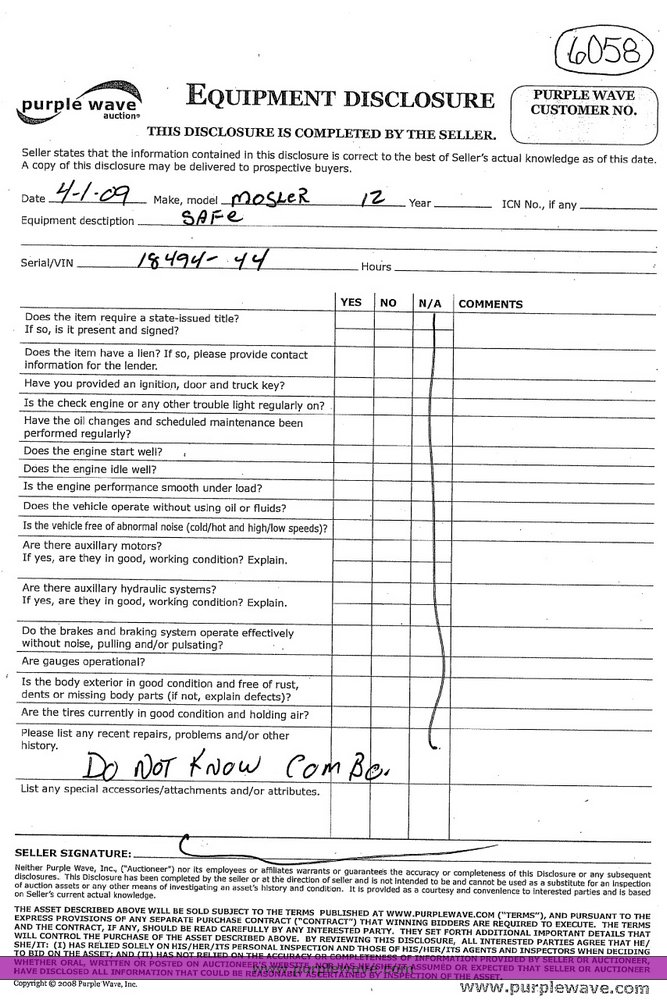 6058
purple wave
auction®
EQUIPMENT DISCLOSURE
PURPLE WAVE
CUSTOMER NO.
THIS DISCLOSURE IS COMPLETED BY THE SELLER.
Seller states that the information contained in this disclosure is correct to the best of Seller's actual knowledge as of this date.
A copy of this disclosure may be delivered to prospective buyers.
Date 4-1-09 Make, model MOSLER 12 Year ICN No., if any
Equipment desctiption SAFE
Serial/VIN 18494-44 Hours
YES NO N/A COMMENTS
Does the item require a state-issued title?
If so, is it present and signed?
Does the item have a lien? If so, please provide contact
information for the lender.
Have you provided an ignition, door and truck key?
Is the check engine or any other trouble light regularly on?
Have the oil changes and scheduled maintenance been
performed regularly?
Does the engine start well?
Does the engine idle well?
Is the engine performance smooth under load?
Does the vehicle operate without using oil or fluids?
Is the vehicle free of abnormal noise (cold/hot and high/low speeds)?
Are there auxillary motors?
If yes, are they in good, working condition? Explain.
Are there auxillary hydraulic systems?
If yes, are they in good, working condition? Explain.
Do the brakes and braking system operate effectively
without noise, pulling and/or pulsating?
Are gauges operational?
Is the body exterior in good condition and free of rust,
dents or missing body parts (if not, explain defects)?
Are the tires currently in good condition and holding air?
Please list any recent repairs, problems and/or other
history.
DO NOT KNOW COMBO.
List any special accessories/attachments and/or attributes.
SELLER SIGNATURE:
Neither Purple Wave, Inc., ("Auctioneer") nor its employees or affiliates warrants or guarantees the accuracy or completeness of this Disclosure or any subsequent
disclosures. This Disclosure has been completed by the seller or at the direction of seller and is not intended to be and cannot be used as a substitute for an inspection
of auction assets or any other means of investigating an asset's history and condition. It is provided as a courtesy and convenience to interested parties and is based
on Seller's current actual knowledge.
THE ASSET DESCRIBED ABOVE WILL BE SOLD SUBJECT TO THE TERMS PUBLISHED AT WWW.PURPLEWAVE.COM ("TERMS"), AND PURSUANT TO THE
EXPRESS PROVISIONS OF ANY SEPARATE PURCHASE CONTRACT ("CONTRACT") THAT WINNING BIDDERS ARE REQUIRED TO EXECUTE. THE TERMS
AND THE CONTRACT, IF ANY, SHOULD BE READ CAREFULLY BY ANY INTERESTED PARTY. THEY SET FORTH ADDITIONAL IMPORTANT DETAILS THAT
WILL CONTROL THE PURCHASE OF THE ASSET DESCRIBED ABOVE. BY REVIEWING THIS DISCLOSURE, ALL INTERESTED PARTIES AGREE THAT HE/
SHE/IT: (I) HAS RELIED SOLELY ON HIS/HER/ITS PERSONAL INSPECTION AND THOSE OF HIS/HER/ITS AGENTS AND INSPECTORS WHEN DECIDING
TO BID ON THE ASSET; AND (II) HAS NOT RELIED ON THE ACCURACY OR COMPLETENESS OF INFORMATION PROVIDED BY SELLER OR AUCTIONEER,
WHETHER ORAL, WRITTEN OR POSTED ON AUCTIONEER'S WEBSITE, NOR HAS HE/SHE/IT ASSUMED OR EXPECTED THAT SELLER OR AUCTIONEER
HAVE DISCLOSED ALL INFORMATION THAT COULD BE REASONABLY ASCERTAINED BY INSPECTION OF THE ASSET.
Copyright © 2008 Purple Wave, Inc.
www.purplewave.com